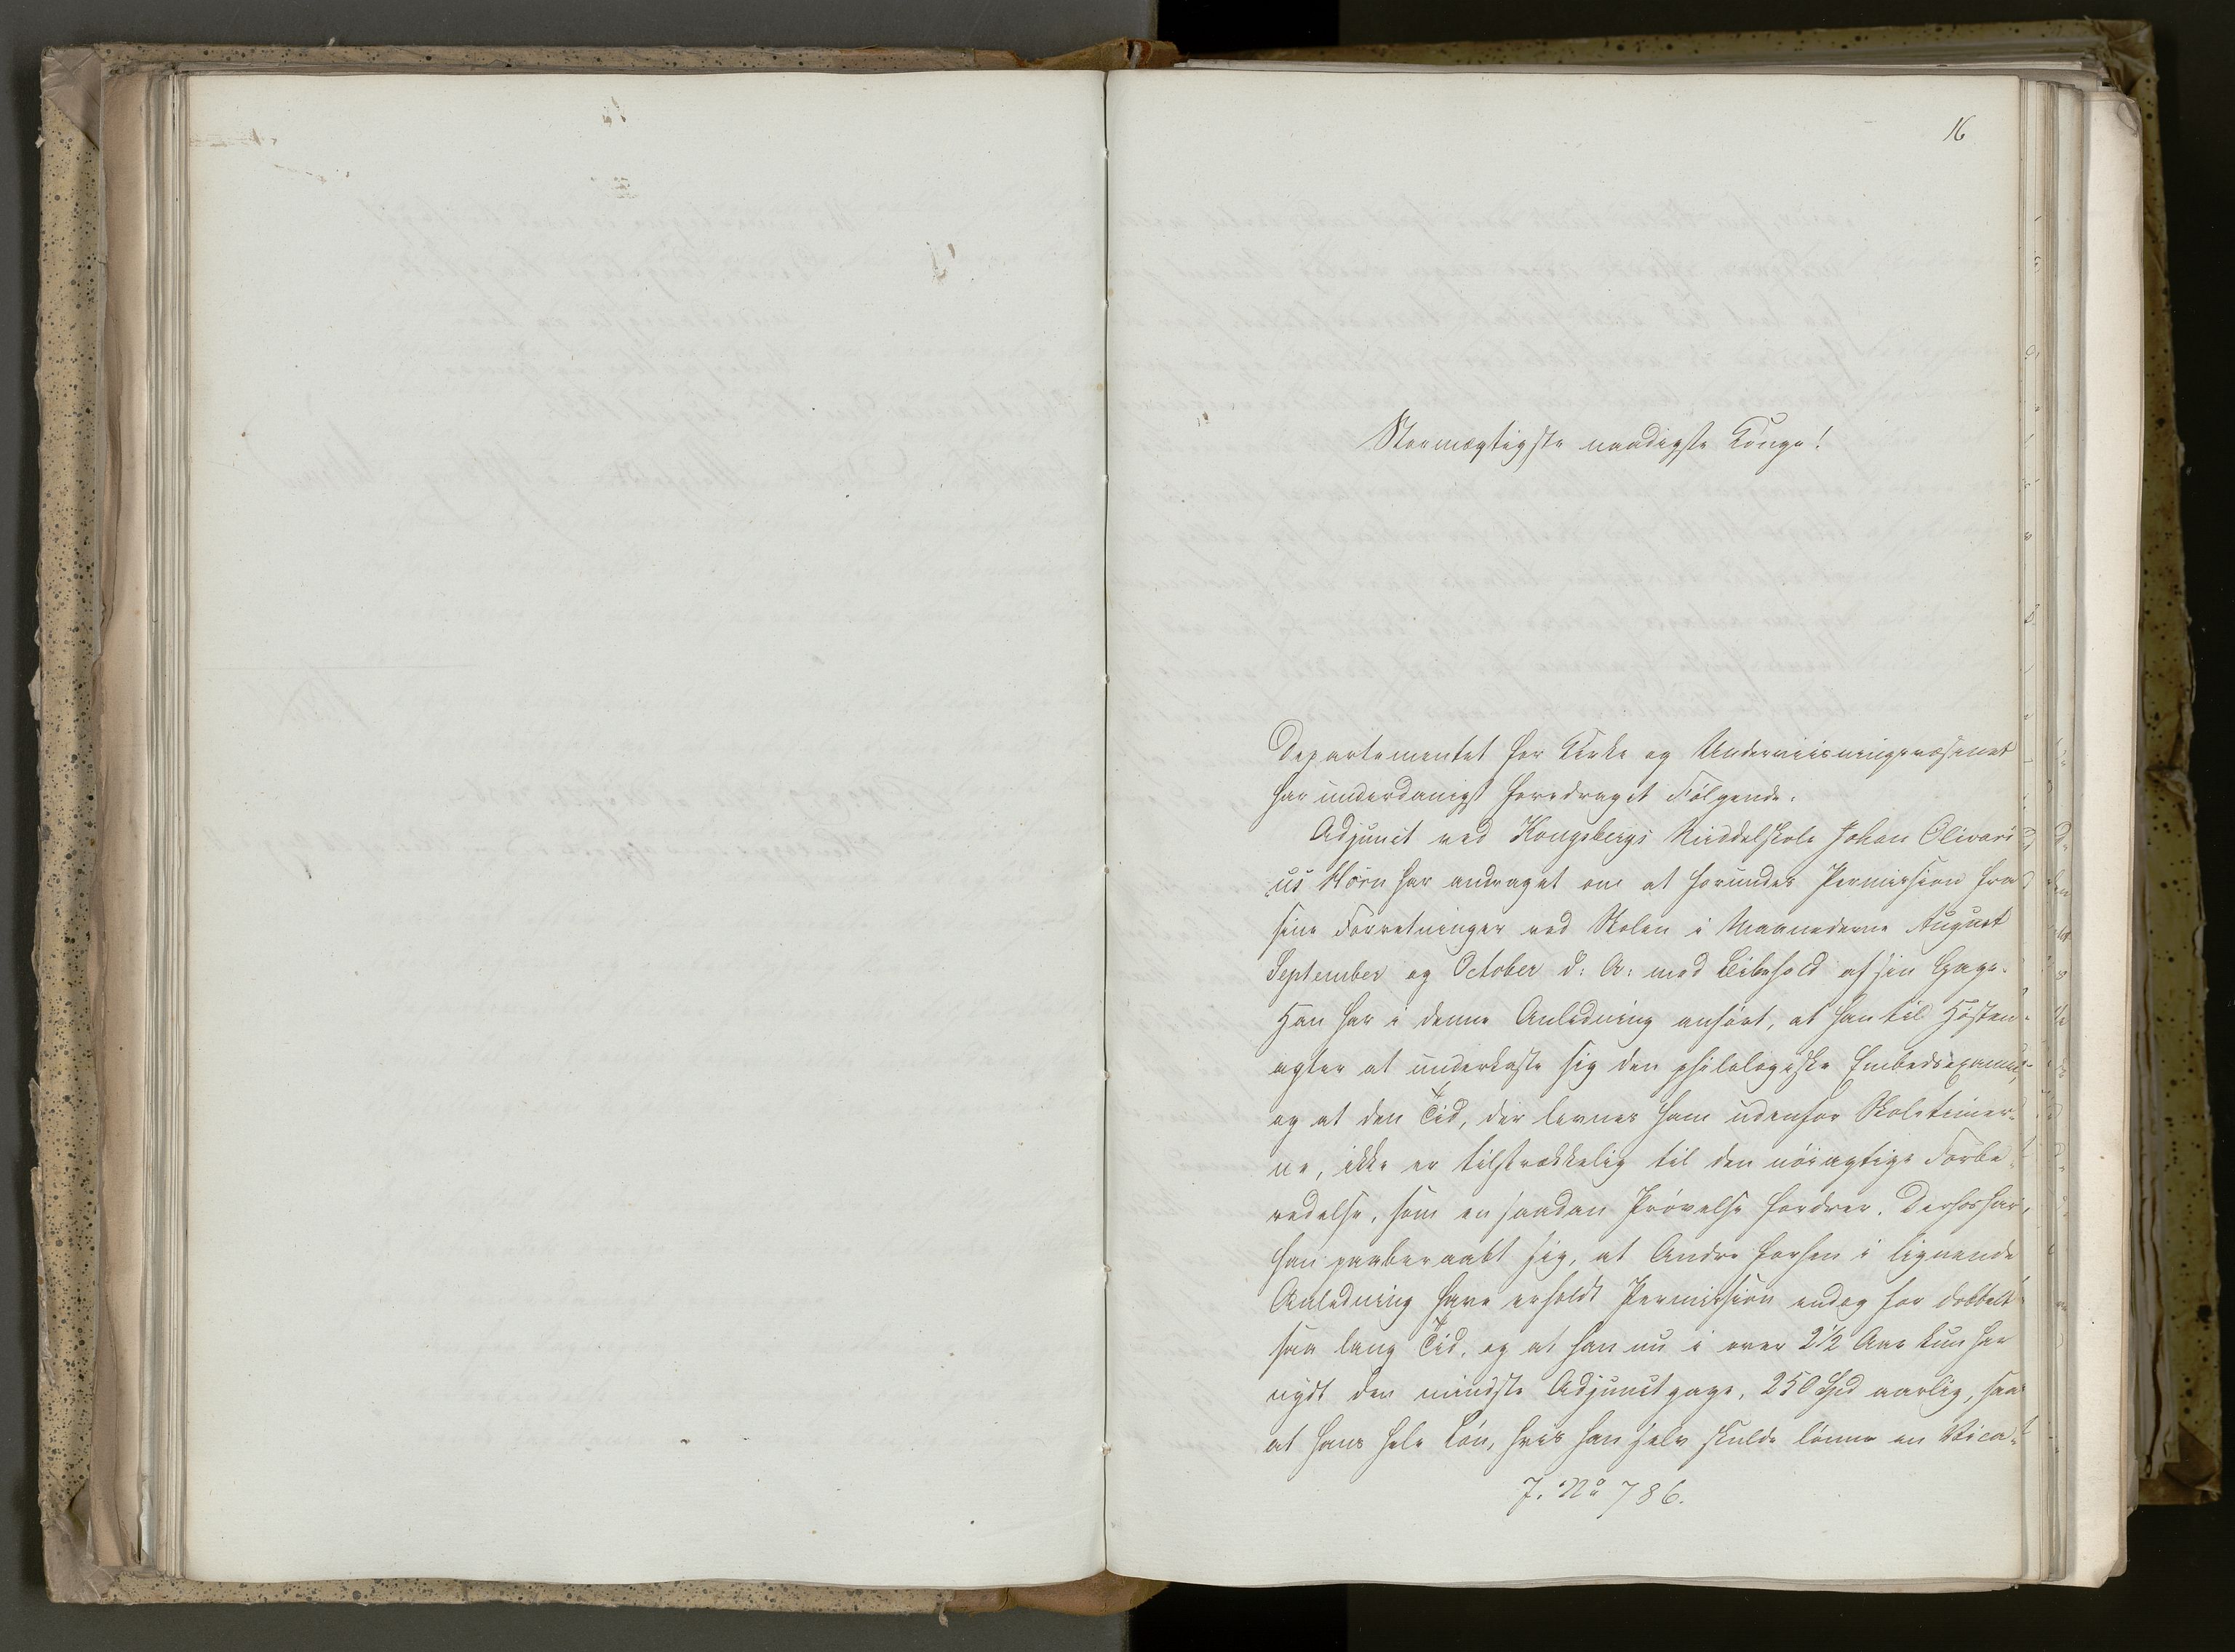 16
Stormægtigste naadigste Konge!
Departementet for Kirke og Underviisningsvæsenet
har underdanigst foredraget Følgende:
Adjunct ved Kongsbergs Middelskole Johan Olivari
us Horn har andraget om at forundes Permission fra
sine Forretninger ved Skolen i Maanederne August
September og October d: A: med Bibehold af sin Gage.
Han har i denne Anledning anført, at han til Høsten
agter at underkaste sig den philologiske Embedsexamen,
og at den Tid, der levnes ham udenfor Skoletimer-
ne, ikke er tilstrækkelig til den nöiagtige Forbe-
redelse, som en saadan Prøvelse fordrer. Derhos har
han paaberaabt sig, at Andre forhen i lignende
Anledning have erholdt Permission endog for dobbelt
saa lang Tid, og at han nu i over 2 1/2 Aar kun har
nydt den mindste Adjunctgage, 250 Spd aarlig, saa
at hans hele Løn, hvis han selv skulde lønne en Vica-
J. No 786.